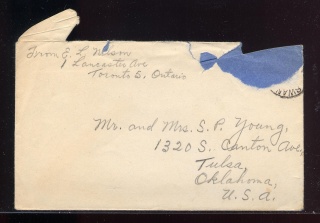 From E. L. Nelson
1 Lancaster Ave
Toronto 5, Ontario
Mr. and Mrs. S. P. Young,
1320 S. Canton Ave,
Tulsa,
Oklahoma,
U. S. A.